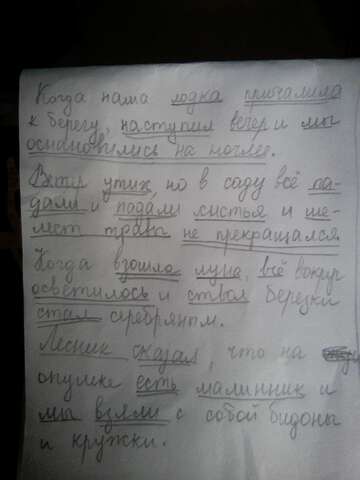 Когда наша лодка причалила
к берегу, наступил вечер и мы
остановились на ночлег.
Ветер утих, но в саду всё па-
дали и падали листья и ше-
лест травы не прекращался.
Когда взошла луна, всё вокруг
осветилось и ствол березки
стал серебряном.
Лесник сказал, что на
опушке есть малинник и
мы взяли с собой бидоны
и кружки.